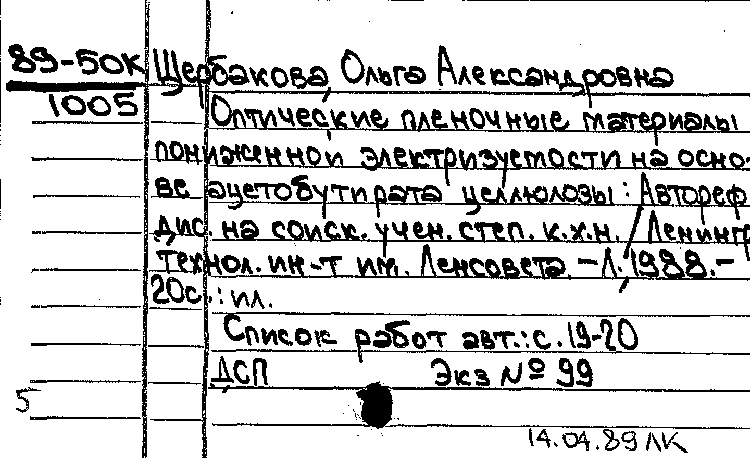 89-50К Щербакова, Ольга Александровна
1005 Оптические пленочные материалы
пониженной электризуемости на осно-
ве ацетобутирата целлюлозы: Автореф
дис. на соиск. учен. степ. к.х.н. / Ленингр
технол. ин-т им. Ленсовета. -Л., 1988.-
20с.: ил.
Список работ авт.: с. 19-20
ДСП Экз № 99
5
14.04.89 ЛК